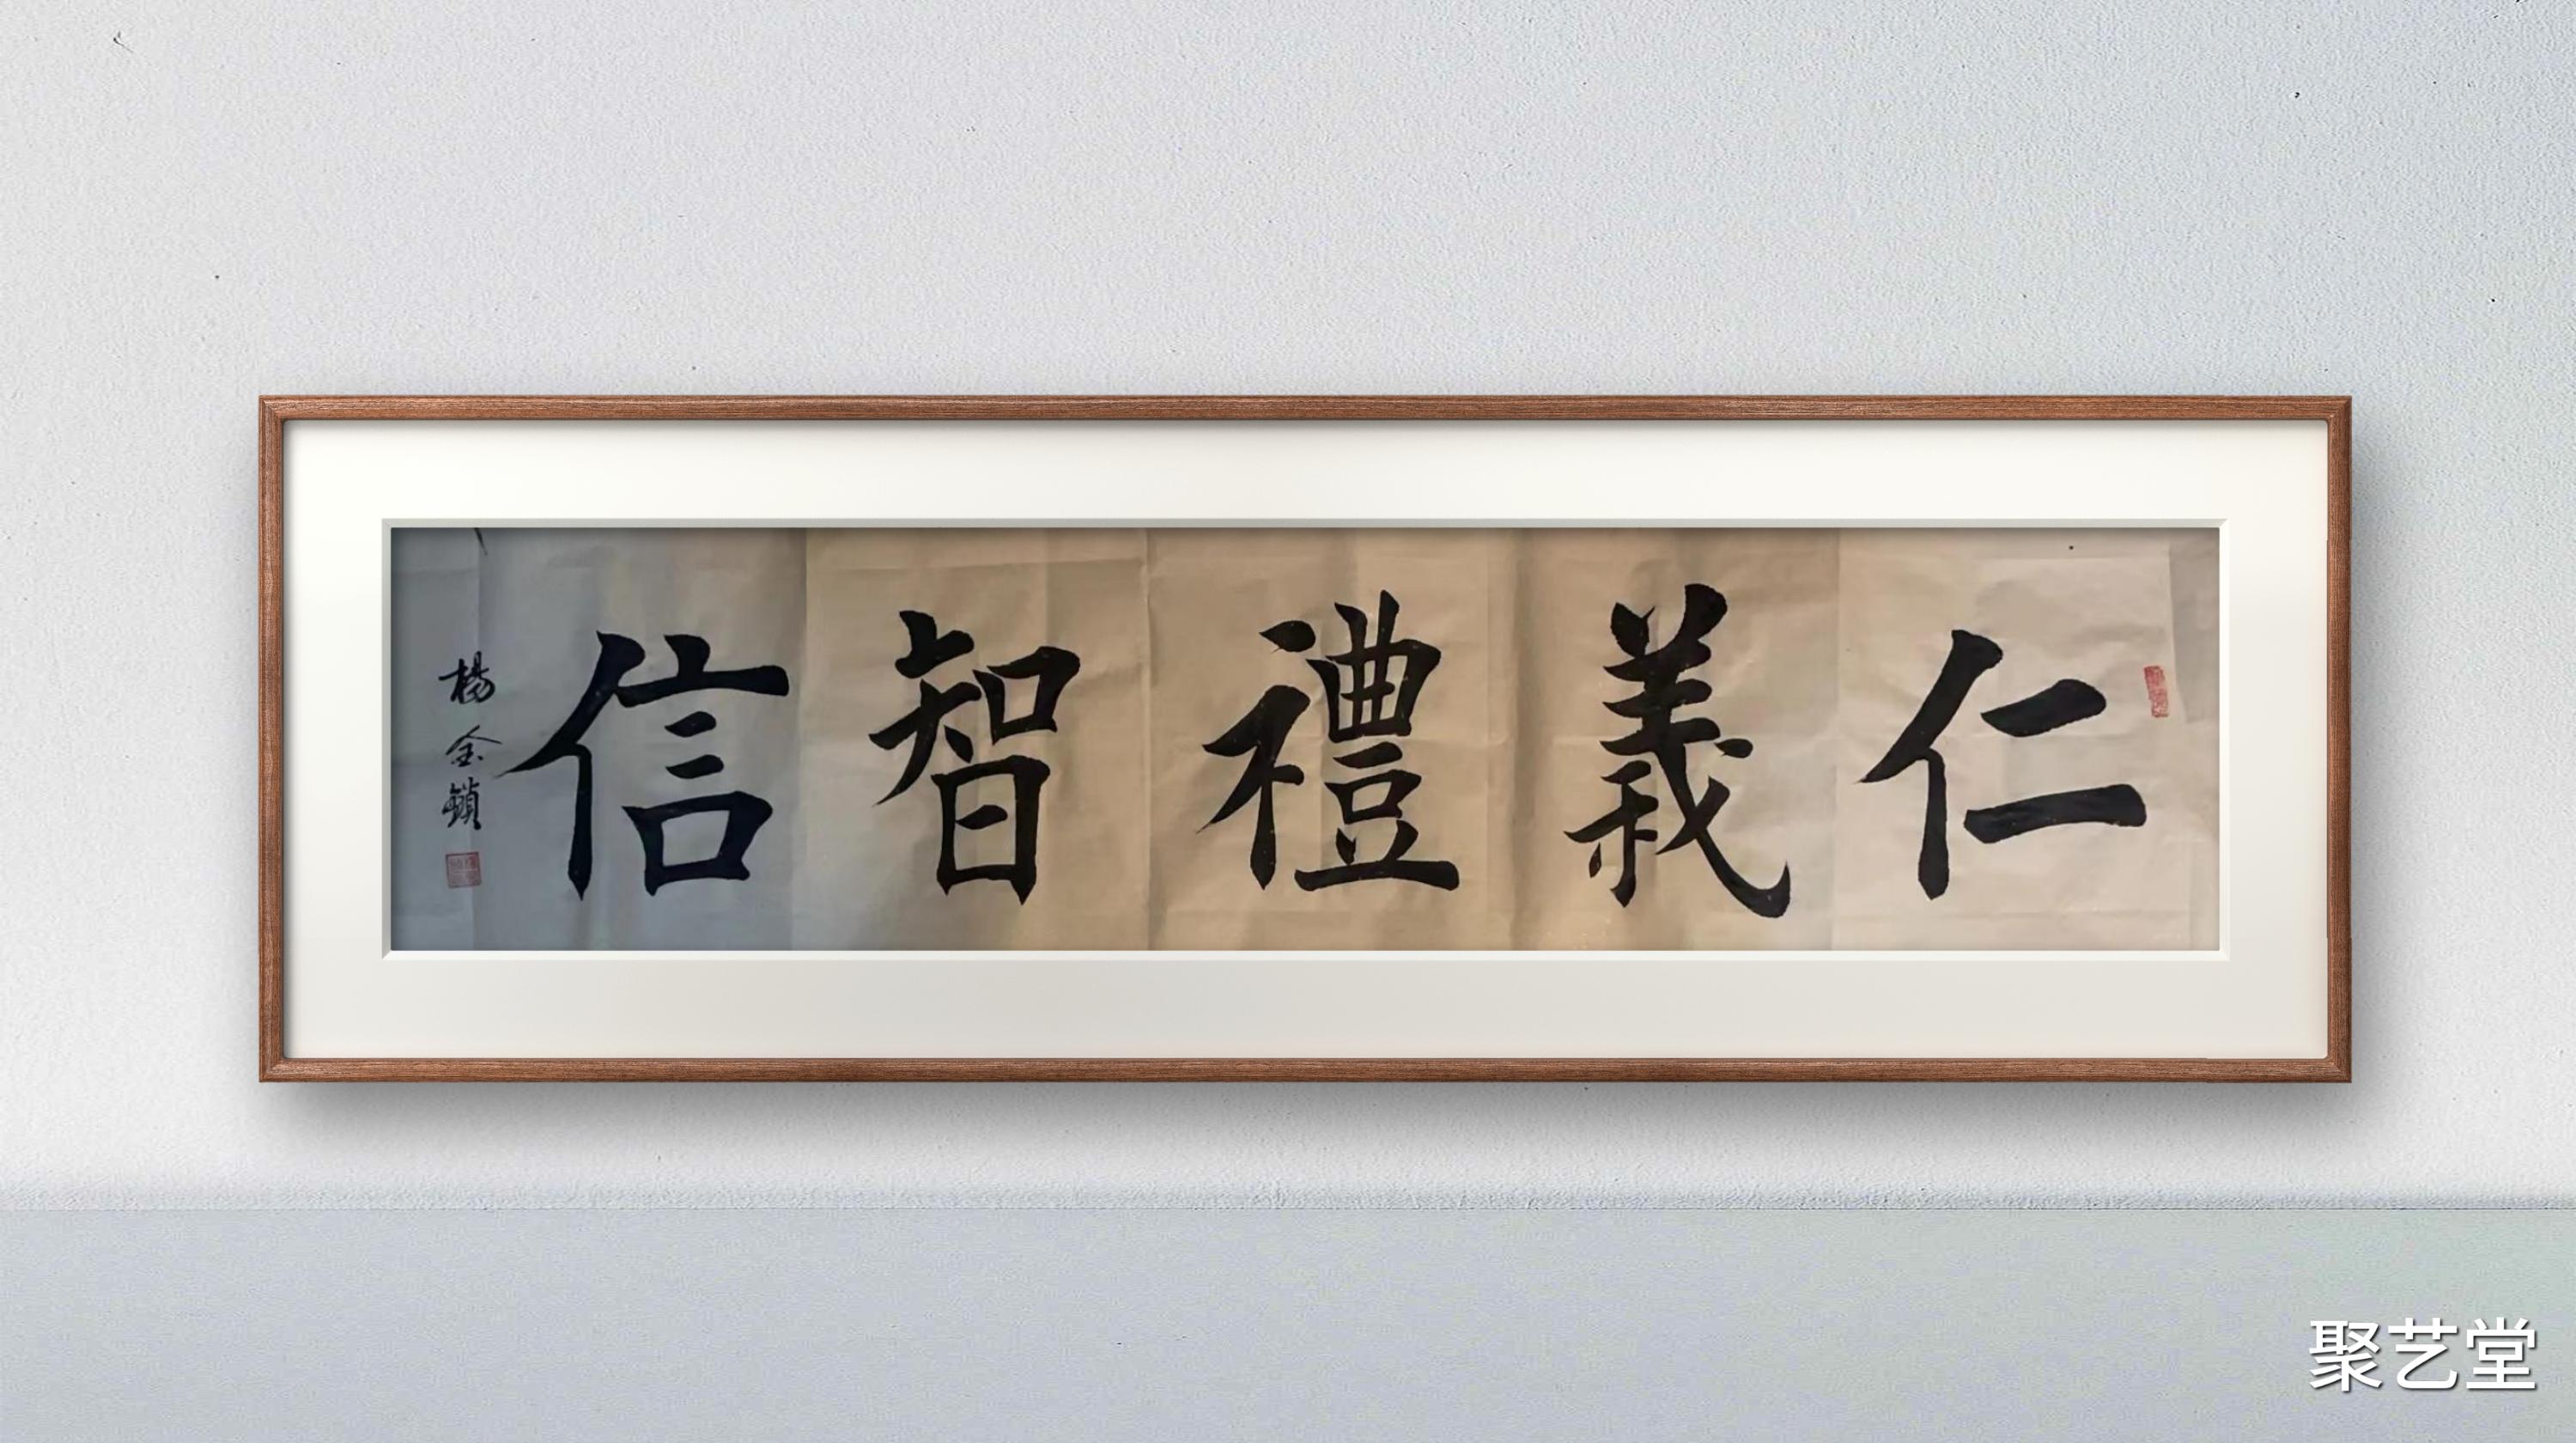 仁義禮智信
楊金鎖
聚艺堂